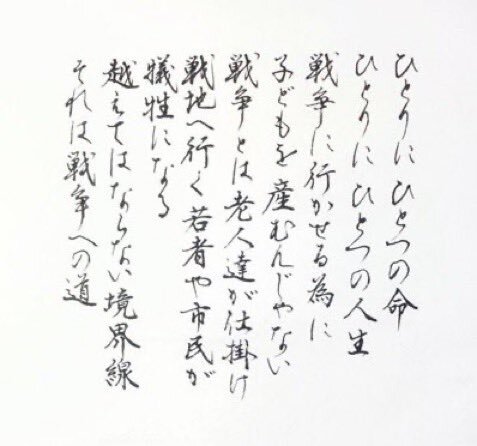 ひとりに ひとつの命
ひとりに ひとつの人生
戦争に行かせる為に
子どもを 産むんじゃない
戦争とは 老人達が仕掛け
戦地へ行く 若者や市民が
犠牲になる
越えてはならない境界線
それは 戦争への道